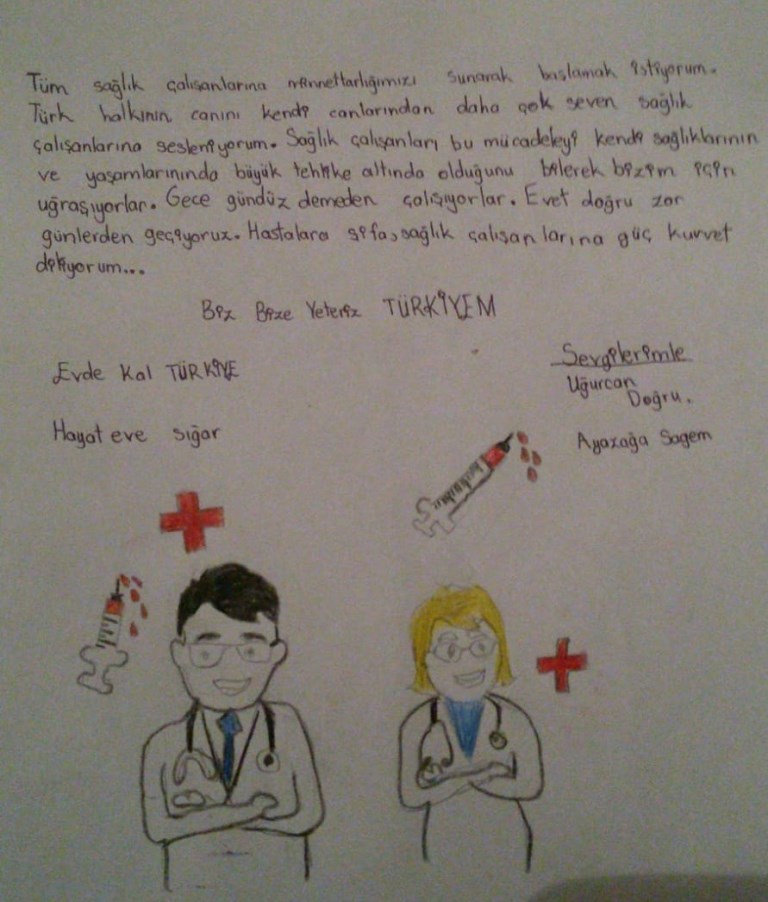 Tüm sağlık çalışanlarına minnettarlığımızı sunarak başlamak istiyorum.
Türk halkının canını kendi canlarından daha çok seven sağlık
çalışanlarına sesleniyorum. Sağlık çalışanları, bu mücadeleyi kendi sağlıklarının
ve yaşamlarınında büyük tehlike altında olduğunu bilerek bizim için
uğraşıyorlar. Gece gündüz demeden çalışıyorlar. Evet doğru zor
günlerden geçiyoruz. Hastalara şifa, sağlık çalışanlarına güç kuvvet
diliyorum...
Biz Bize Yeteriz TÜRKİYEM
Evde Kal TÜRKİYE
Hayat eve sığar
Sevgilerimle
Uğurcan
Doğru.
Ayazağa Sagem